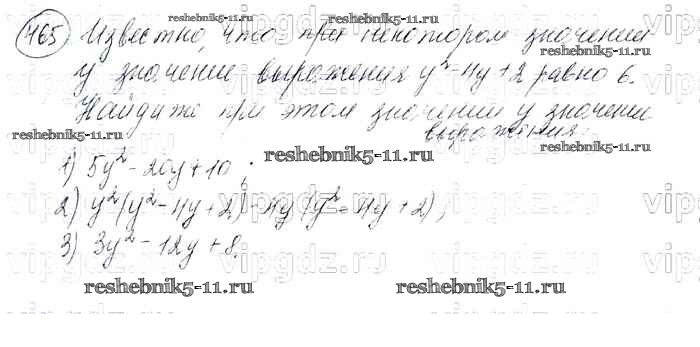 465 Известно, что при некотором значении
у значение выражения y² - 4y + 2 равно 6.
Найдите при этом значении у значение
выражения:
1) 5y² - 20y + 10;
2) y²(y² - 4y + 2) - 4y(y² - 4y + 2);
3) 3y² - 12y + 8.
reshebnik5-11.ru
reshebnik5-11.ru
reshebnik5-11.ru
reshebnik5-11.ru
reshebnik5-11.ru
reshebnik5-11.ru
reshebnik5-11.ru
reshebnik5-11.ru
vipgdz.ru
vipgdz.ru
vipgdz.ru